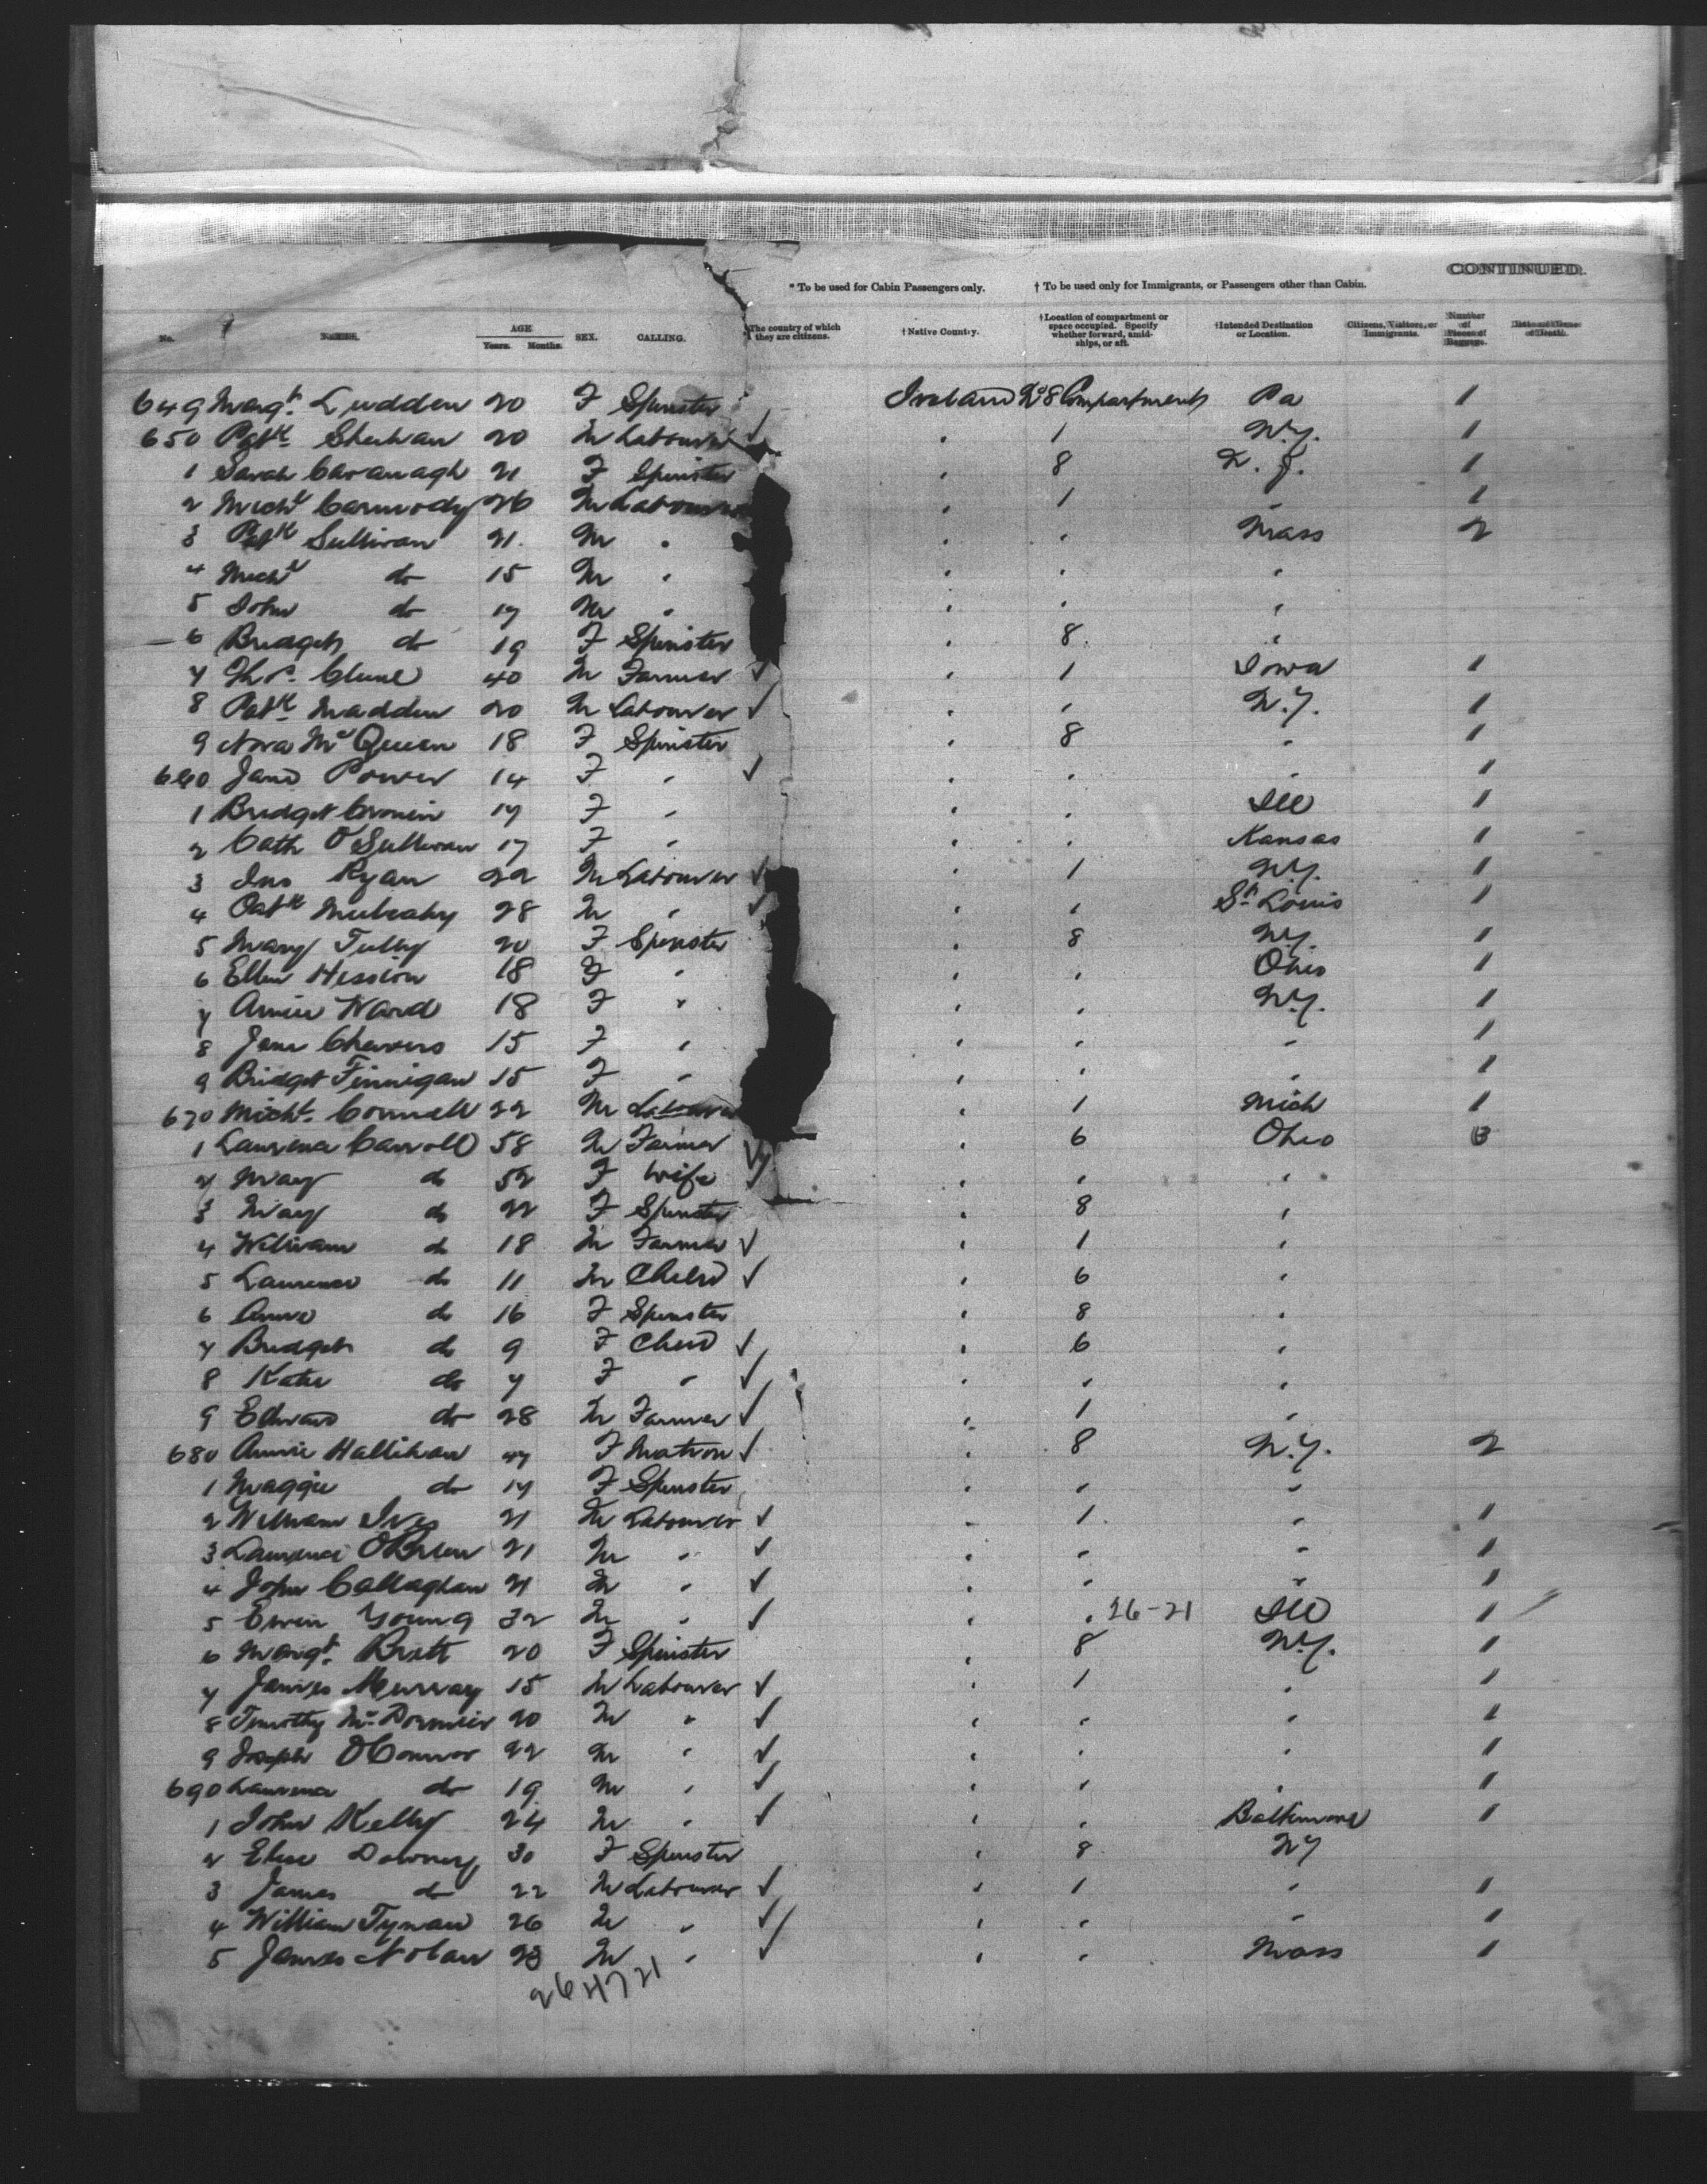 CONTINUED.
* To be used for Cabin Passengers only. † To be used only for Immigrants, or Passengers other than Cabin.
No. NAMES. AGE Years. Months. SEX. CALLING. The country of which they are citizens. † Native Country. † Location of compartment or space occupied. Specify whether forward, amidships, or aft. † Intended Destination or Location. Citizens, Visitors, or Immigrants. Number of Pieces of Baggage. Date and Cause of Death.
649 Margt. Ludden 20 F Spinster Ireland No 8 Compartment Pa 1
650 Patk Sheehan 20 M Labourer ✓ " 1 N.Y. 1
1 Sarah Cavanagh 21 F Spinster " 8 1
2 Michl Carmody 26 M Labourer " 1 " 1
3 Patk Sullivan 21 M " " " Mass 2
4 Michl do 15 M " " " "
5 John do 17 M " " " "
6 Bridget do 19 F Spinster " 8 "
7 Ths. Clune 40 M Farmer ✓ " 1 Iowa 1
8 Patk Madden 20 M Labourer ✓ " " N.Y. 1
9 Nora McQueen 18 F Spinster " 8 " 1
660 Jane Power 14 F " ✓ " " " 1
1 Bridget Cronin 17 F " " " Ill 1
2 Cath O'Sullivan 17 F " " " Kansas 1
3 Jno Ryan 22 M Labourer ✓ " 1 N.Y. 1
4 Patk Mulcahy 28 M " ✓ " " St. Louis 1
5 Mary Tully 20 F Spinster " 8 N.Y. 1
6 Ellen Hession 18 F " " " Ohio 1
7 Annie Ward 18 F " " " N.Y. 1
8 Jane Chevers 15 F " " " " 1
9 Bridget Finnigan 15 F " " " " 1
670 Michl. Connell 22 M Labourer " 1 Mich 1
1 Laurence Carroll 58 M Farmer ✓ " 6 Ohio
2 Mary do 52 F Wife ✓ " " "
3 Mary do 22 F Spinster " 8 "
4 William do 18 M Farmer ✓ " 1 "
5 Laurence do 11 M Child ✓ " 6 "
6 Annie do 16 F Spinster " 8 "
7 Bridget do 9 F Child ✓ " 6 "
8 Kate do 7 F " ✓ " " "
9 Edward do 28 M Farmer ✓ " 1 "
680 Annie Hallihan 47 F Matron ✓ " 8 N.Y. 2
1 Maggie do 17 F Spinster " " "
2 William Ives 21 M Labourer ✓ " 1 " 1
3 Laurence OBrien 21 M " ✓ " " " 1
4 John Callaghan 21 M " ✓ " " " 1
5 Ewen Young 32 M " ✓ " " 26-21 Ill 1
6 Margt. Brett 20 F Spinster " 8 N.Y. 1
7 James Murray 15 M Labourer ✓ " 1 " 1
8 Timothy 20 M " ✓ " " " 1
9 Joseph OConnor 22 M " ✓ " " " 1
690 Laurence do 19 M " ✓ " " " 1
1 John Kelly 24 M " ✓ " " Baltimore 1
2 Elise Downey 30 F Spinster " 8 NY
3 James do 22 M Labourer ✓ " 1 " 1
4 William Tynan 26 M " ✓ " " " 1
5 James Nolan 23 M " ✓ " " Mass 1
264721